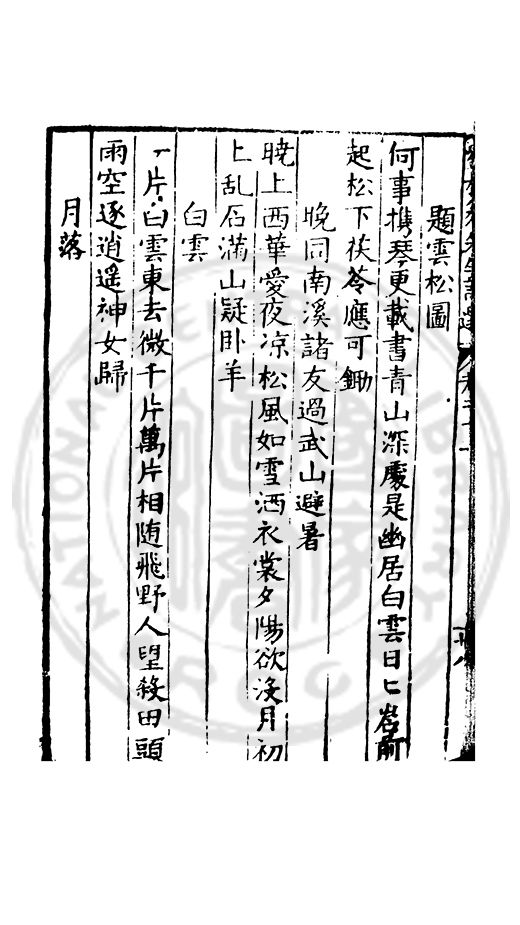 題雲松圖
何事携琴更載書青山深處是幽居白雲日匕岩前
起松下茯苓應可鋤
晚同南溪諸友過武山避暑
曉上西華愛夜凉松風如雪洒衣裳夕陽欲没月初
上乱石滿山疑卧羊
白雲
一片白雲東去微千片萬片相随飛野人望殺田頭
雨空逐逍遥神女歸
月落